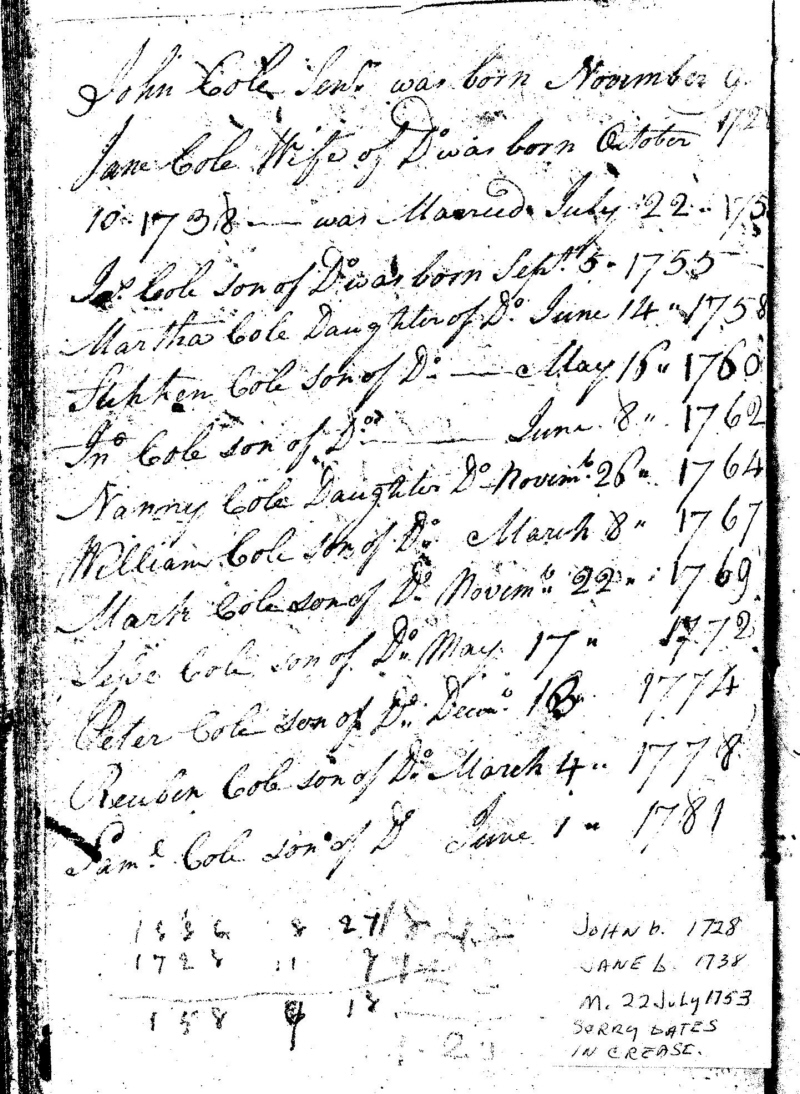 John Cole Senr. was born November 9
172
Jane Cole Wife of Do was born October
10 - 1738 — was Married July 22 .. 175
Cole son of Do was born Sept. 5 .. 1755 —
Martha Cole Daughter of Do. June 14 .. 1758
Stephen Cole son of Do. — May 16 .. 1760
Jno Cole son of Do. — June 8 .. 1762
Nanny Cole Daughter Do. Novimb. 26 .. 1764
William Cole son of Do. March 8 .. 1767
Mark Cole son of Do. Novimb. 22 .. 1769.
Cole son of Do. May 17 .. 1772
Peter Cole son of Do. Decmo. 1774
Reuben Cole son of Do. March 4 .. 1778
Saml. Cole son of Do June 1 .. 1781
1886 8 27
1728 11
158 9 18
JOHN b. 1728
JANE b. 1738
M. 22 July 1753
SORRY DATES
IN CREASE.